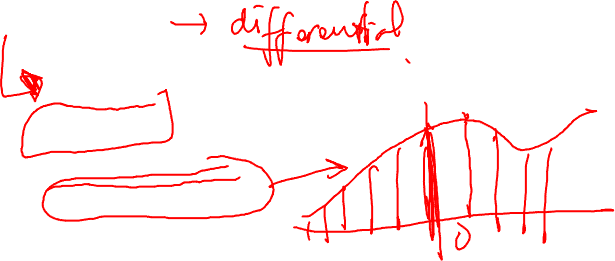 → differential
0